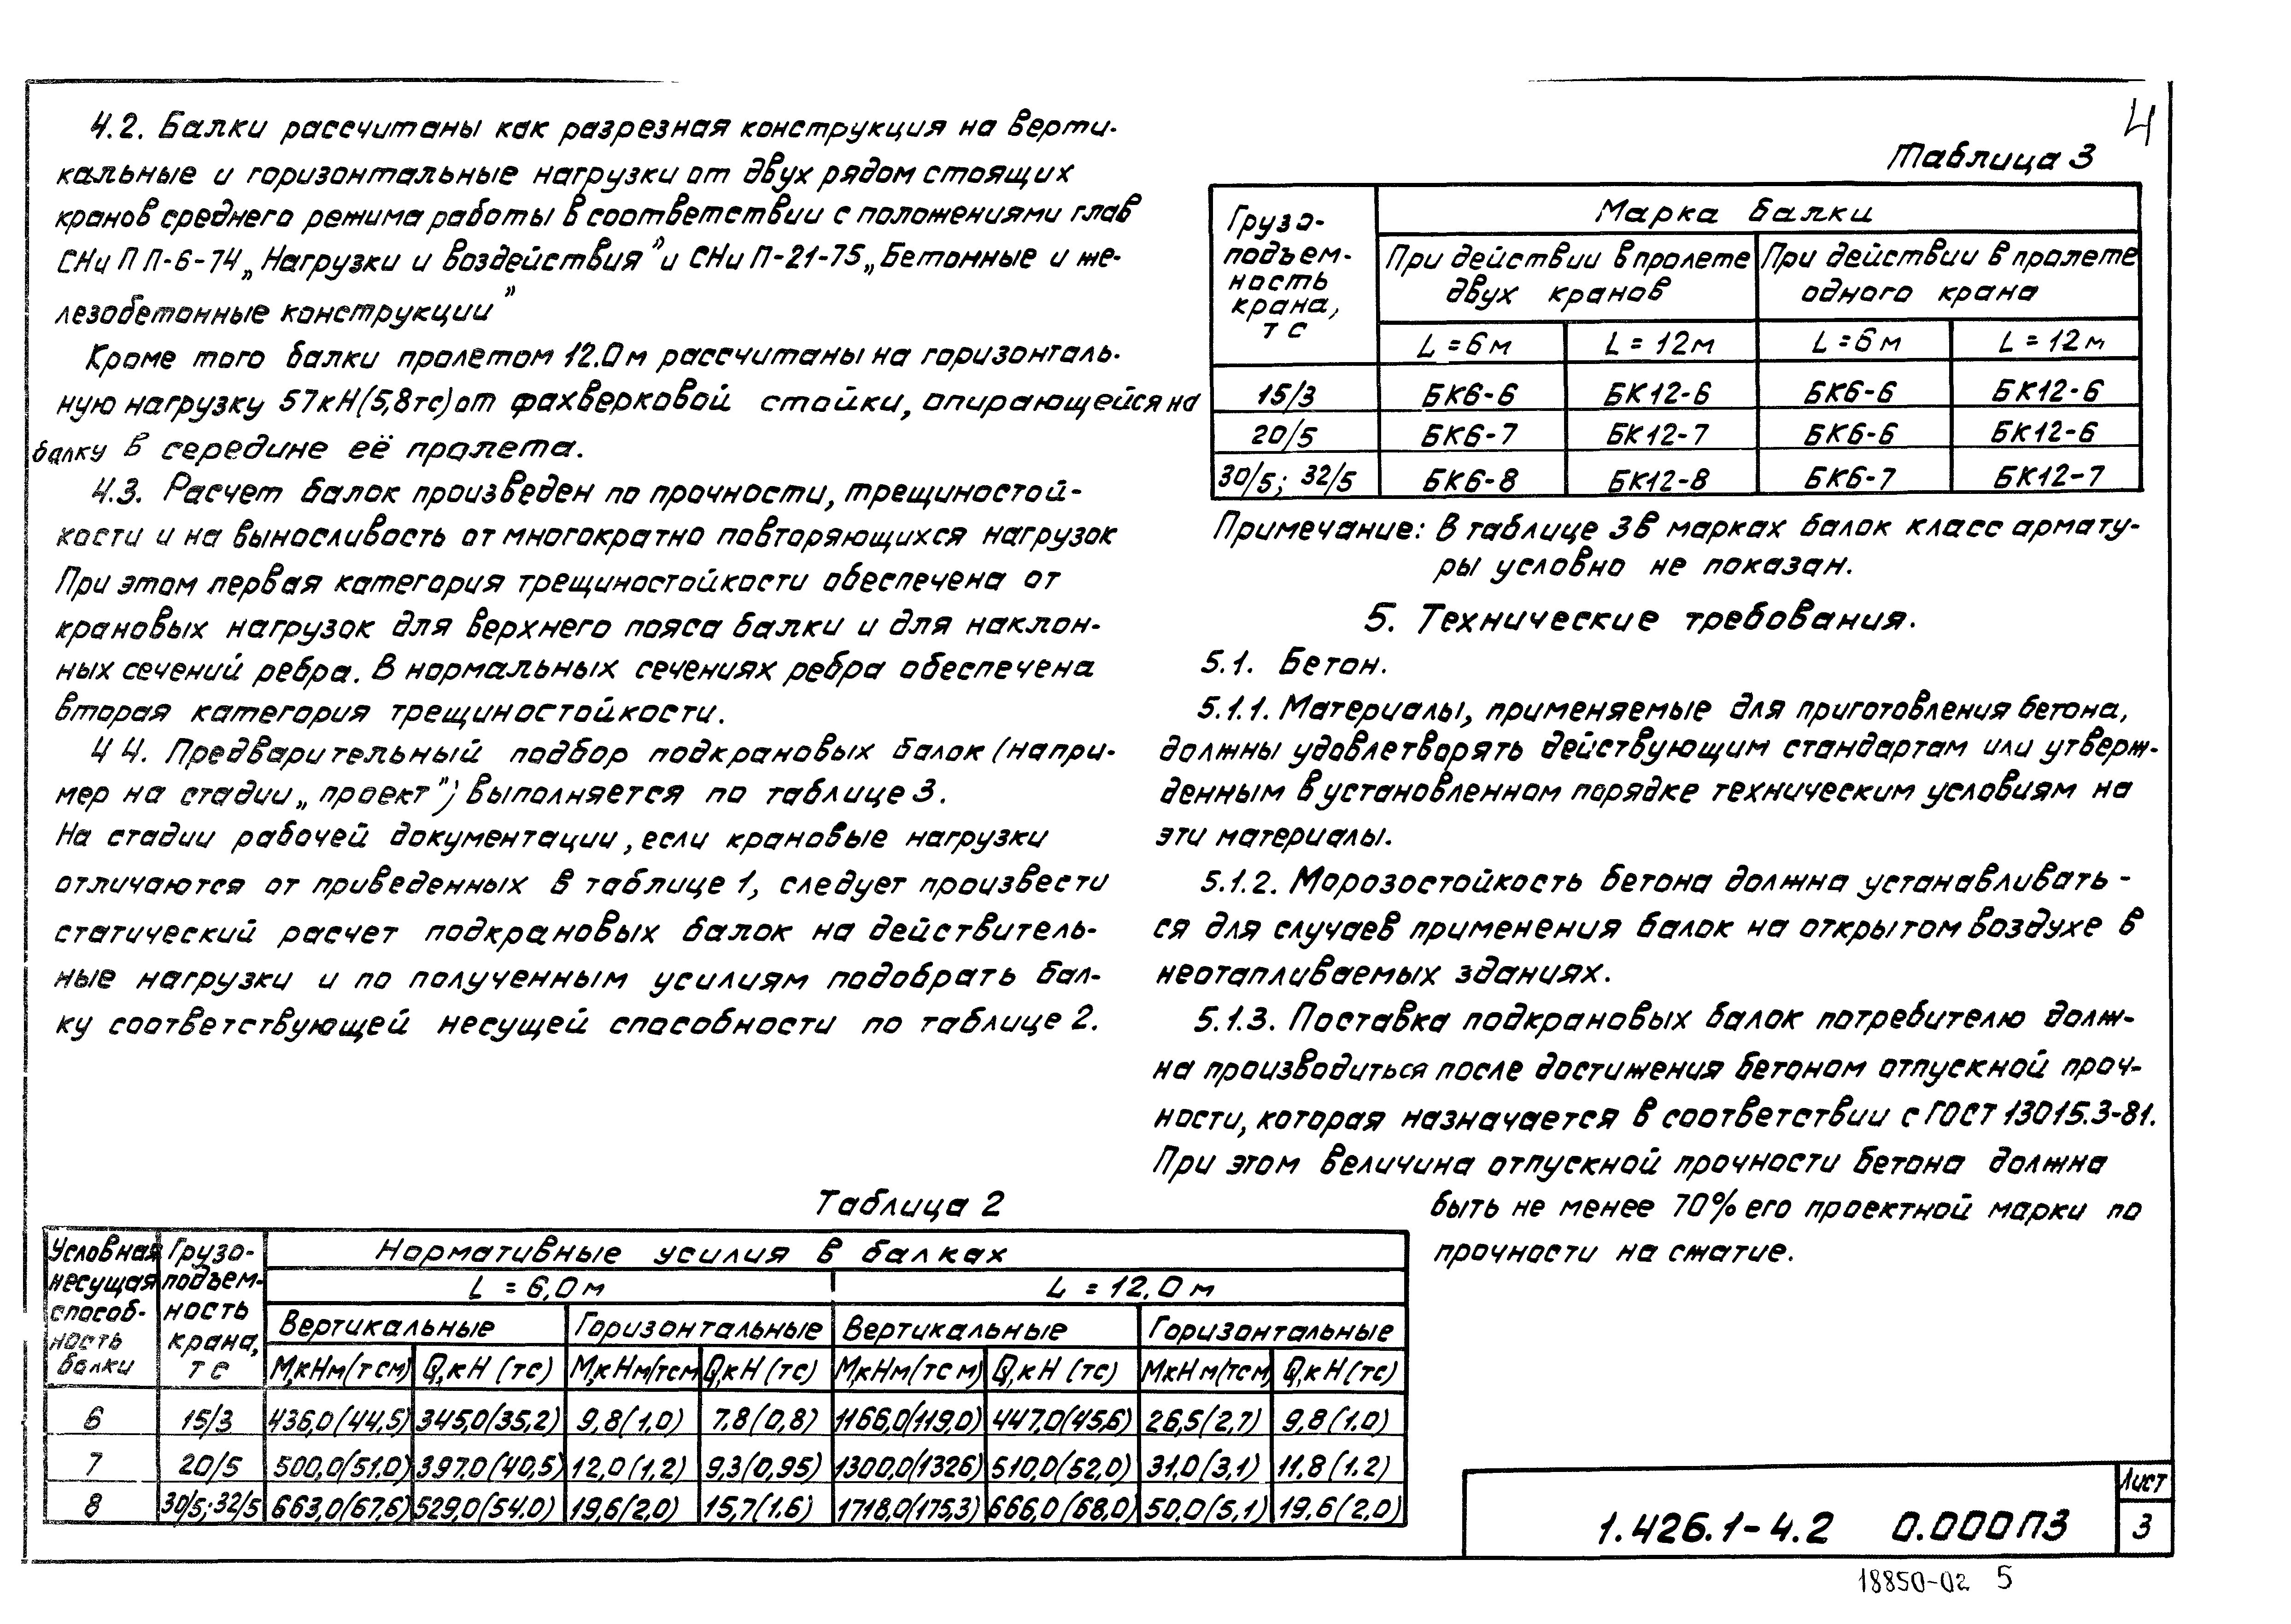 4
4.2. Балки рассчитаны как разрезная конструкция на верти-
кальные и горизонтальные нагрузки от двух рядом стоящих
кранов среднего режима работы в соответствии с положениями глав
СНиП П-6-74 „Нагрузки и воздействия" и СНиП-21-75 „Бетонные и же-
лезобетонные конструкции"
Кроме того балки пролетом 12.0м рассчитаны на горизонталь-
ную нагрузку 57кН(5,8тс) от фахверковой стойки, опирающейся на
балку в середине её пролета.
4.3. Расчет балок произведен по прочности, трещиностой-
кости и на выносливость от многократно повторяющихся нагрузок
При этом первая категория трещиностойкости обеспечена от
крановых нагрузок для верхнего пояса балки и для наклон-
ных сечений ребра. В нормальных сечениях ребра обеспечена
вторая категория трещиностойкости.
4 4. Предварительный подбор подкрановых балок (напри-
мер на стадии „проект") выполняется по таблице 3.
На стадии рабочей документации, если крановые нагрузки
отличаются от приведенных в таблице 1, следует произвести
статический расчет подкрановых балок на действитель-
ные нагрузки и по полученным усилиям подобрать бал-
ку соответствующей несущей способности по таблице 2.
Таблица 3
Грузо-
подъем-
ность
крана,
тс
Марка балки
При действии в пролете двух кранов
При действии в пролете одного крана
L = 6м L = 12м L = 6м L = 12м
15/3 БК6-6 БК12-6 БК6-6 БК12-6
20/5 БК6-7 БК12-7 БК6-6 БК12-6
30/5; 32/5 БК6-8 БК12-8 БК6-7 БК12-7
Примечание: В таблице 3 в марках балок класс армату-
ры условно не показан.
5. Технические требования.
5.1. Бетон.
5.1.1. Материалы, применяемые для приготовления бетона,
должны удовлетворять действующим стандартам или утверж-
денным в установленном порядке техническим условиям на
эти материалы.
5.1.2. Морозостойкость бетона должна устанавливать-
ся для случаев применения балок на открытом воздухе в
неотапливаемых зданиях.
5.1.3. Поставка подкрановых балок потребителю долж-
на производиться после достижения бетоном отпускной проч-
ности, которая назначается в соответствии с ГОСТ 13015.3-81.
При этом величина отпускной прочности бетона должна
быть не менее 70% его проектной марки по
прочности на сжатие.
Таблица 2
Условная
несущая
способ-
ность
балки
Грузо-
подъем-
ность
крана,
тс
Нормативные усилия в балках
L = 6,0м L = 12,0м
Вертикальные Горизонтальные Вертикальные Горизонтальные
М,кНм(тсм) Q,кН(тс) М,кНм(тсм Q,кН(тс) М,кНм(тсм) Q,кН(тс) МкНм(тсм Q,кН(тс)
6 15/3 436,0(44,5) 345,0(35,2) 9,8(1,0) 7.8(0,8) 1166,0(119,0) 447,0(45,6) 26,5(2,7) 9,8(1.0)
7 20/5 500,0(51.0) 397.0(40,5) 12,0(1,2) 9,3(0,95) 1300,0(1326) 510,0(52,0) 31,0(3,1) 11,8(1.2)
8 30/5; 32/5 663,0(67,6) 529,0(54.0) 19,6(2,0) 15,7(1.6) 1718,0(175,3) 666,0(68,0) 50,0(5,1) 19,6(2,0)
1.426.1-4.2 0.000ПЗ
Лист
3
18850-02 5